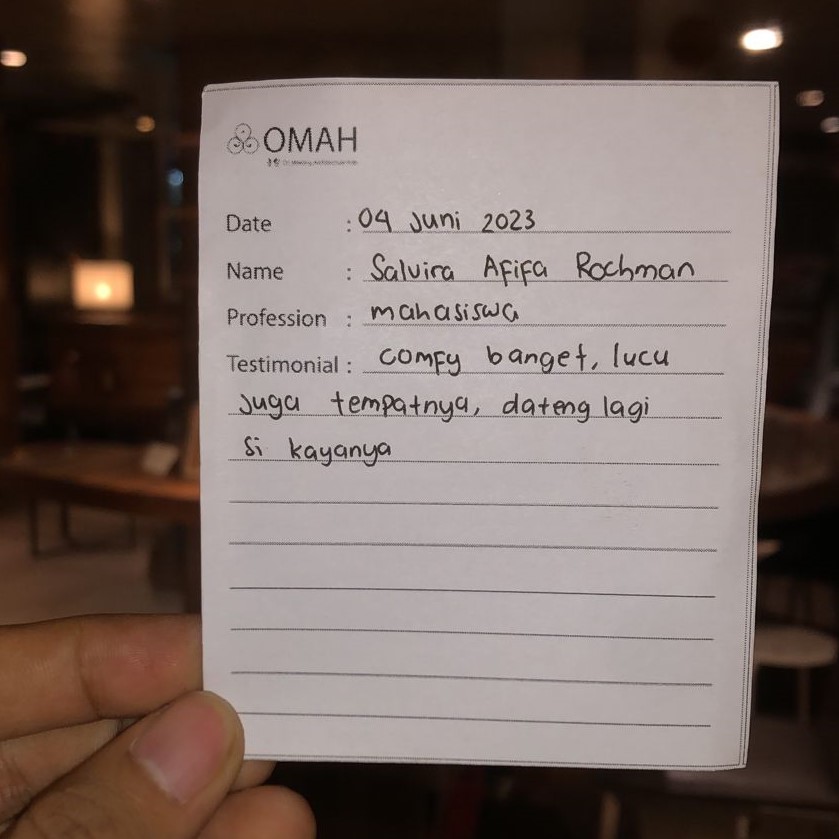 OMAH
Date : 04 Juni 2023
Name : Salvira Afifa Rochman
Profession : mahasiswa
Testimonial : comfy banget, lucu
juga tempatnya, dateng lagi
si kayanya